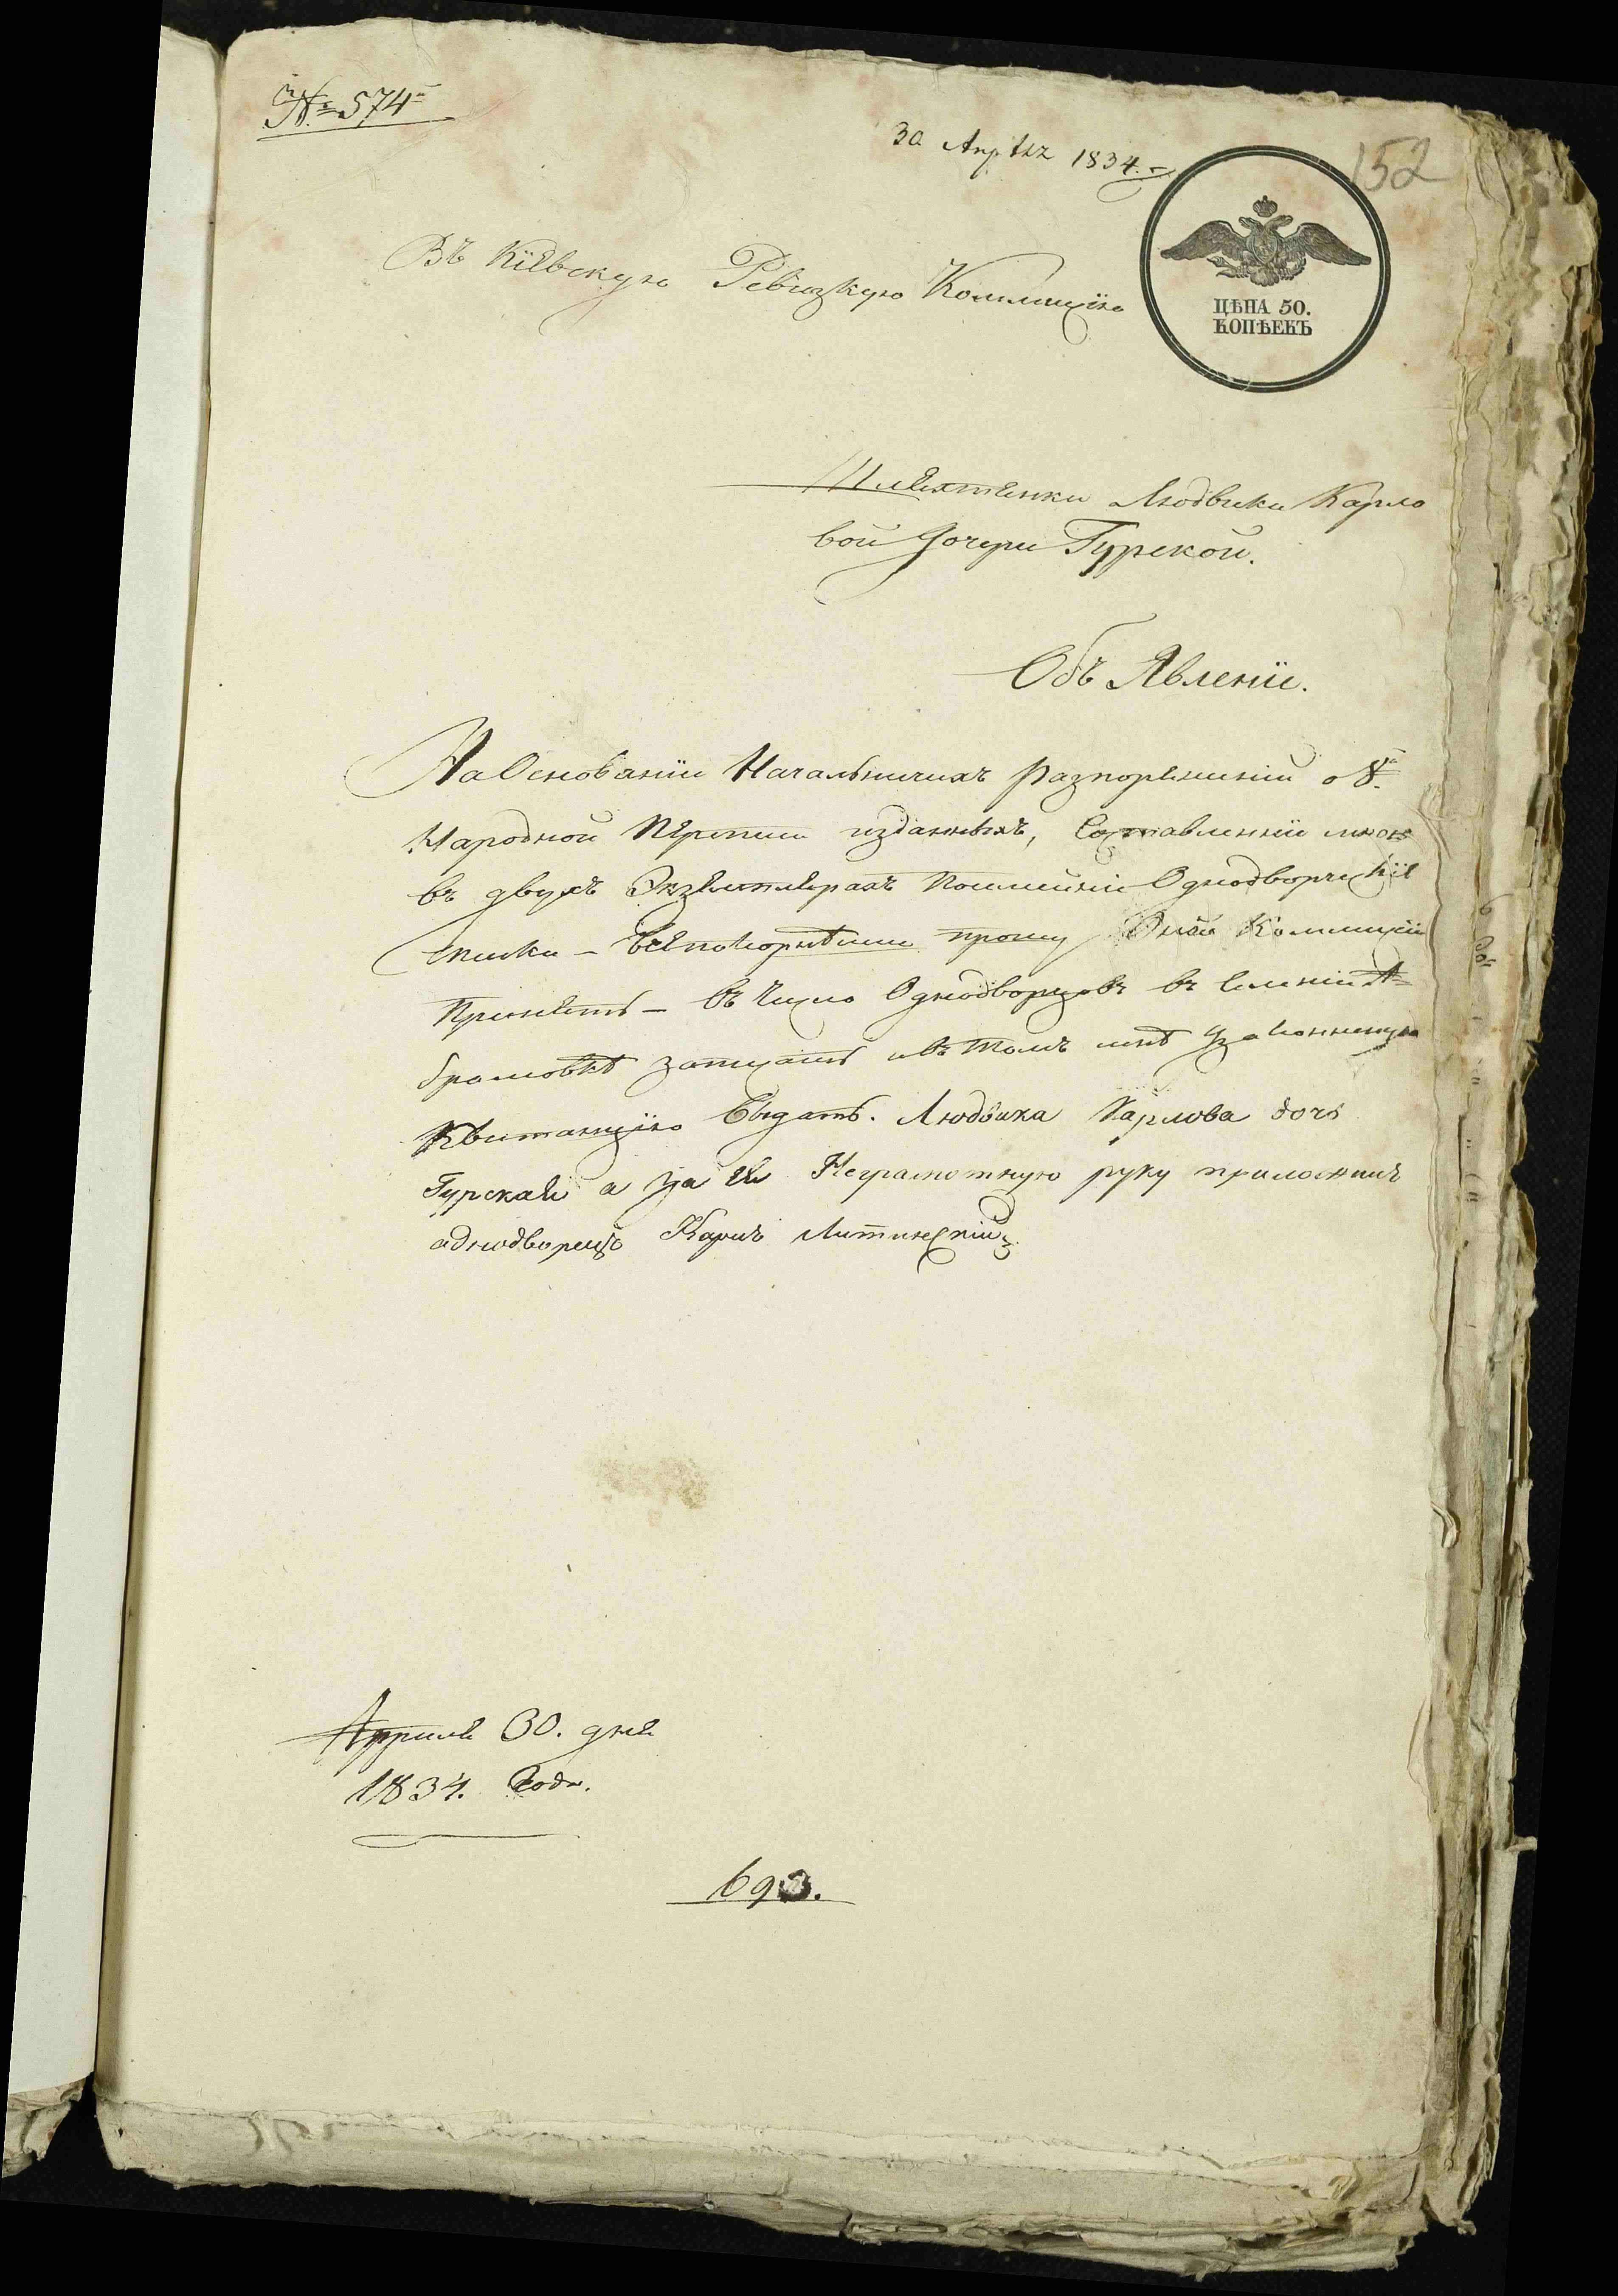 № 574
30 Апрѣля 1834.
152
ЦѢНА 50.
КОПѢЕКЪ
Въ Кіевскую Ревизкую Коммицїю
Шляхтянки Людвики Карло
вой Дочери Гурской.
Объ Явленїе.
На Основанїи Начальничихъ Разпоряженїй о 8й
Народной Переписи изданныхъ, Составленнїе мною
въ двухъ Экземплярахъ Однодворческїе
списки – всепокорнѣйше прошу Оной Коммицїи
Принять – въ Число Однодворцовъ въ Селенїи А=
брамовкѣ записать и въ томъ мнѣ Узаконенную
Квитанцїю Выдать. Людвика Карлова дочь
Гурская а за ея Неграмотную руку приложилъ
аднодворецъ Карлъ Литинскїй
Априля 30. дня
1834. Года.
693.